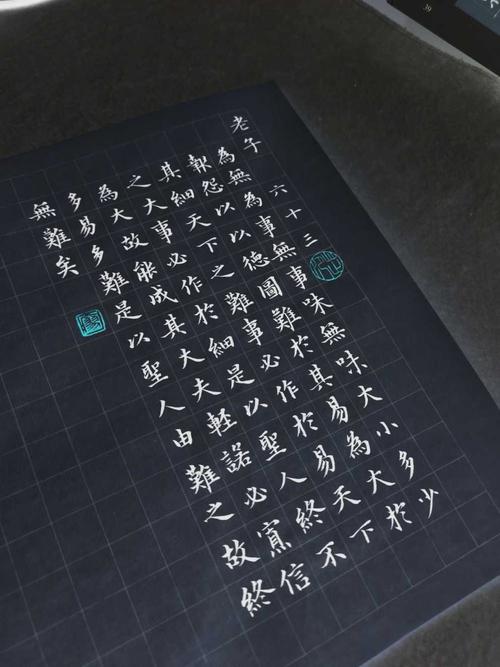 老子 六十三
為無為事無事味無味大小多少
報怨以以德圖難於其易為大於
其細天下之難事必作於易天下
之大事必作於細是以聖人終不
為大故能成其大夫輕諾必寡信
多易多難是以聖人由難之故終
無難矣
39